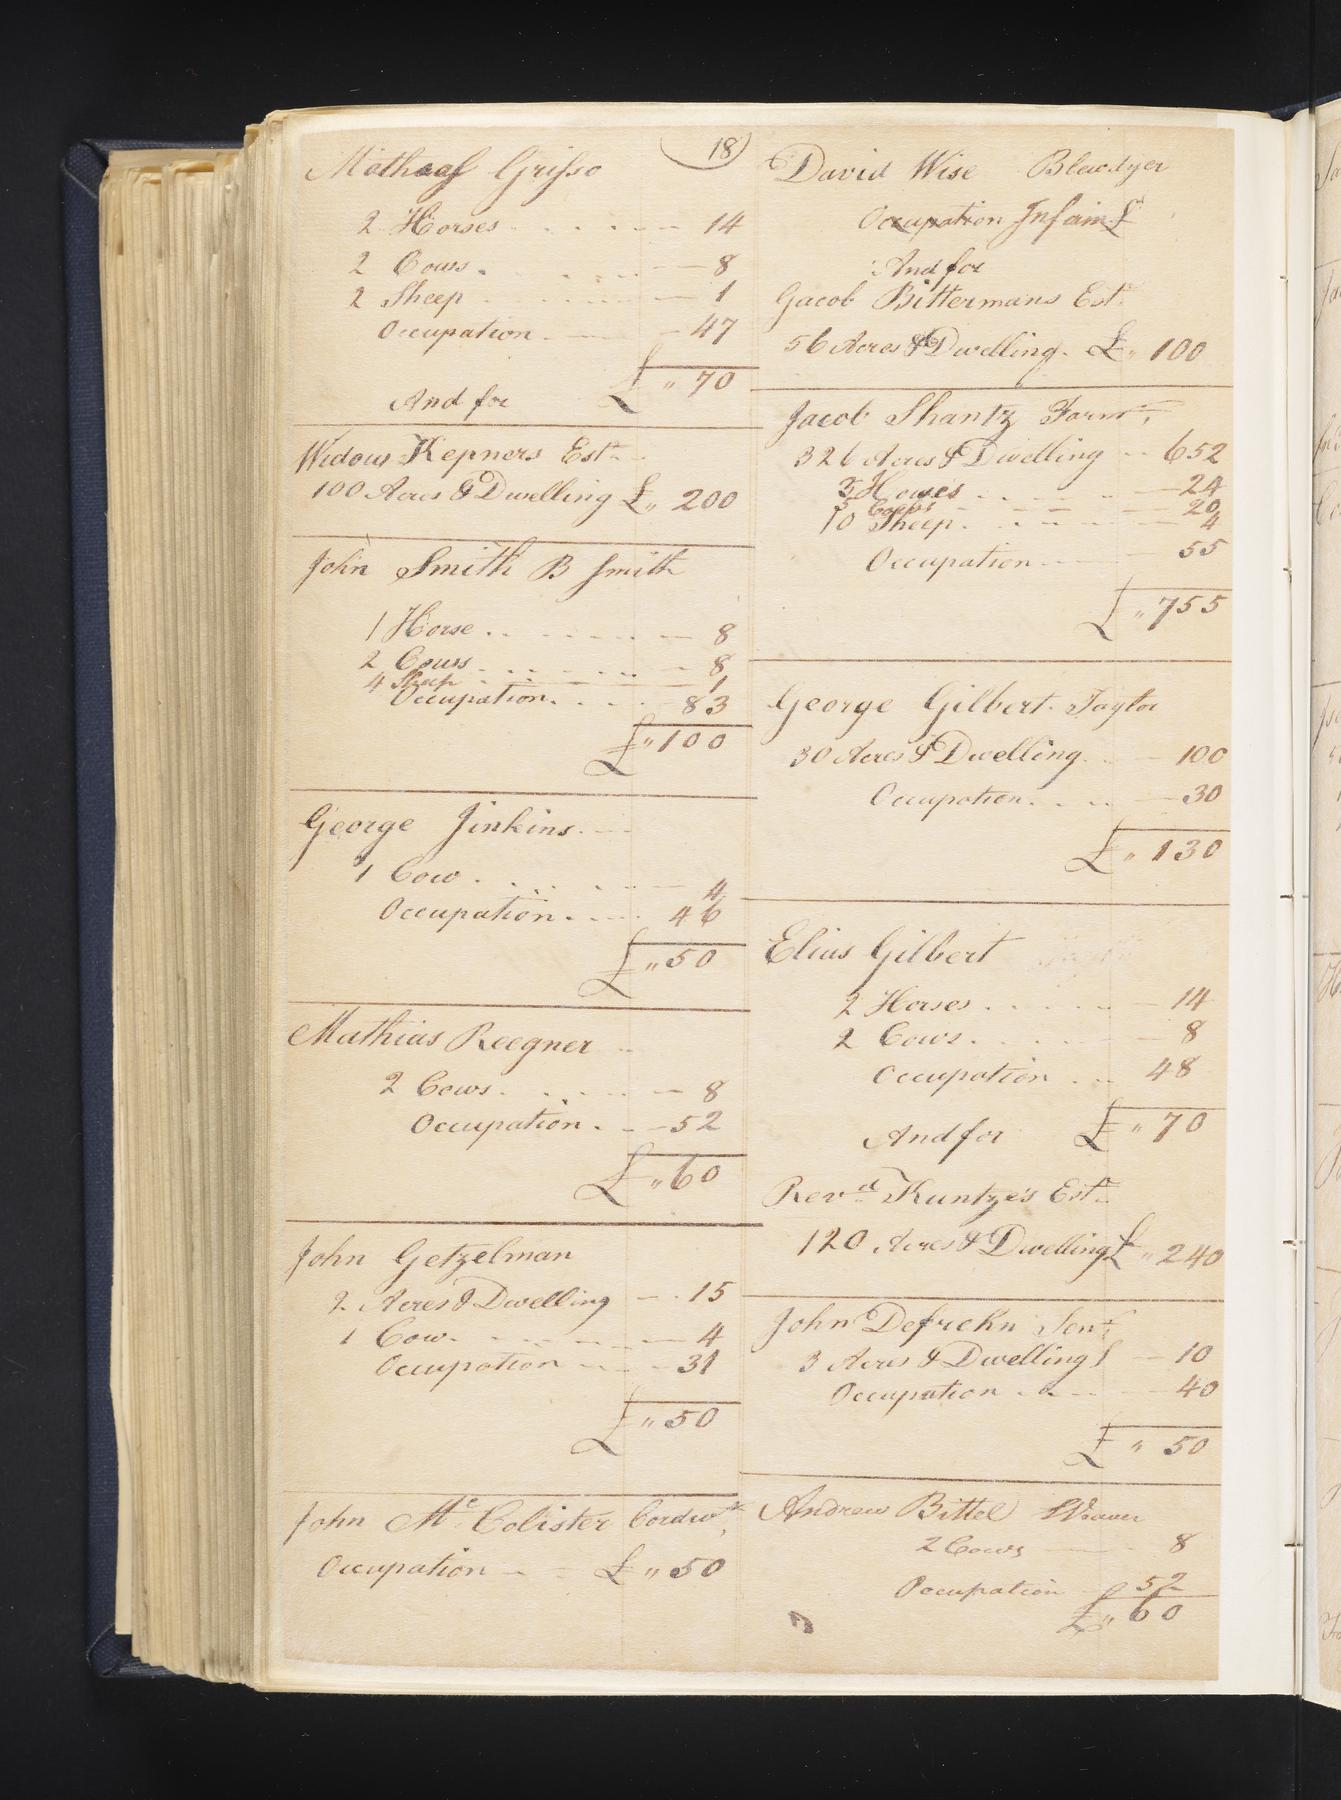 18
Mathaas Grisso
2 Horses 14
2 Cows 8
2 Sheep 1
Occupation 47
£ " 70
And for
Widow Kepners Est.
100 Acres & Dwelling £ " 200
John Smith B Smith
1 Horse 8
2 Cows 8
4 Sheep 1
Occupation 83
£ " 100
George Jinkins
1 Cow 4
Occupation 46
£ " 50
Mathias Reegner
2 Cows 8
Occupation 52
£ " 60
John Getzelman
2 Acres & Dwelling 15
1 Cow 4
Occupation 31
£ " 50
John Mc Colister Cordwr
Occupation £ " 50
David Wise
Occupation
And for
Jacob Bittermans Est.
56 Acres & Dwelling £ " 100
Jacob Shantz Farmr
326 Acres & Dwelling 652
3 Horses 24
5 Cows 20
10 Sheep 4
Occupation 55
£ " 755
George Gilbert Taylor
30 Acres & Dwelling 100
Occupation 30
£ " 130
Elias Gilbert
2 Horses 14
2 Cows 8
Occupation 48
And for £ " 70
Revd Kuntze's Est.
120 Acres & Dwelling £ " 240
John Defrehn Senr
3 Acres & Dwelling 10
Occupation 40
£ " 50
Andrew Bittel Weaver
2 Cows 8
Occupation 52
£ " 60